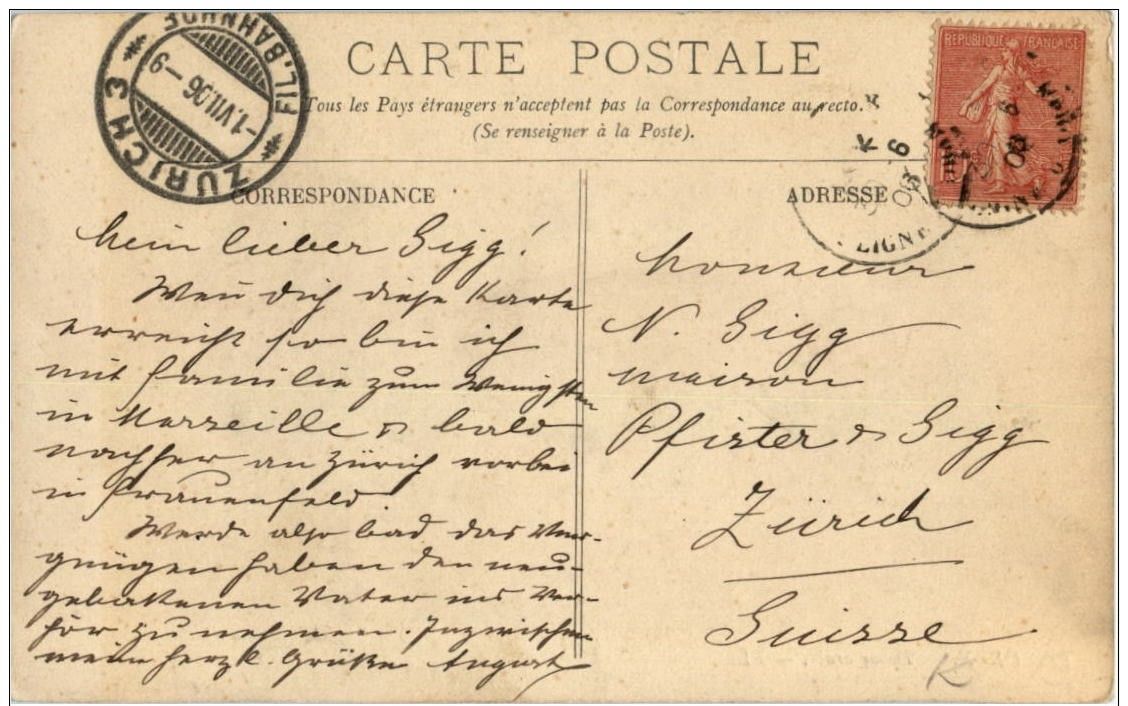 CARTE POSTALE
Tous les Pays étrangers n'acceptent pas la Correspondance au recto.
(Se renseigner à la Poste).
CORRESPONDANCE
Mein lieber Sigg!
Wen̄ dich diese Karte
erreicht so bin ich
mit Familie zum Wenigsten
in Marseille & bald
nachher an Zürich vorbei
in Frauenfeld
Werde also bad das Ver-
gnügen haben den neu-
gebakenen Vater ins Ver-
hör zu nehmen. Inzwischen
mein herzl. Grüße August
ADRESSE
Monsieur
N. Sigg
maison
Pfister & Sigg
Zürich
Suisse
ZÜRICH 3 FIL. BAHNHOF
-1.VII.06-9
REPUBLIQUE FRANÇAISE
LIGNE